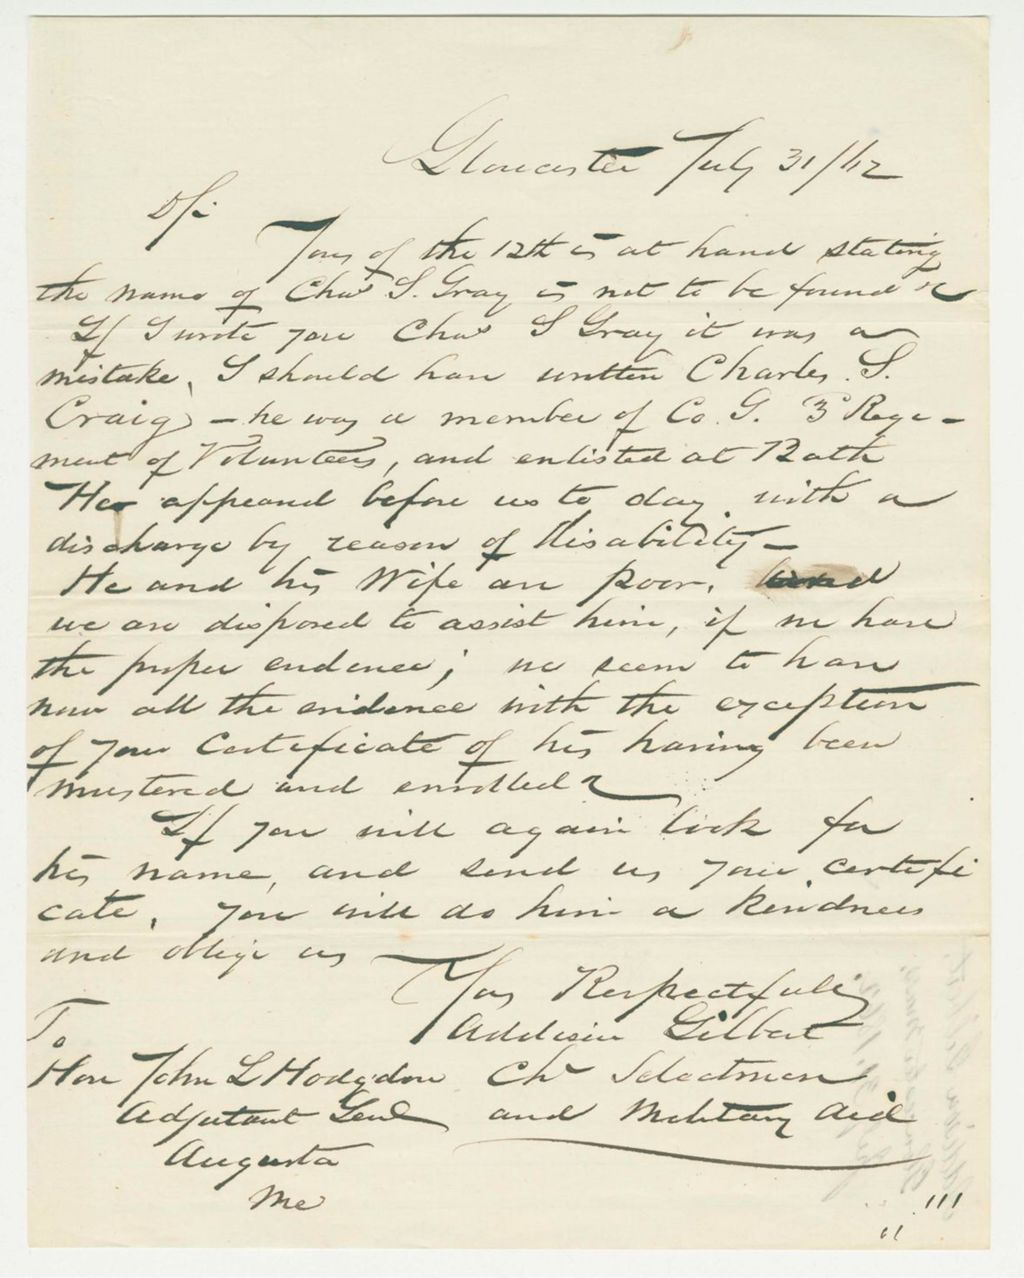 Gloucester July 31/62
D/Sir
Yours of the 12th is at hand stating
the name of Chas S. Gray is not to be found
If I wrote you Chas S Gray it was a
mistake, I should have written Charles. S.
Craig) – he was a member of Co. G. 3d Rege-
ment of Volunteers, and enlisted at Bath
He appeared before us to day with a
discharge by reason of disability –
He and his Wife are poor, and
we are disposed to assist him, if we have
the proper evidence; we seem to have
now all the evidence with the exception
of your Certificate of his having been
mustered and enrolled
If you will again look for
his name, and send us your certifi
cate, you will do him a kindness
and oblige us
Yours Respectfully
Addison Gilbert
Chr Selectmen
and Military Aid
To
Hon John L Hodgdon
Adjutant Genl
Augusta
Me